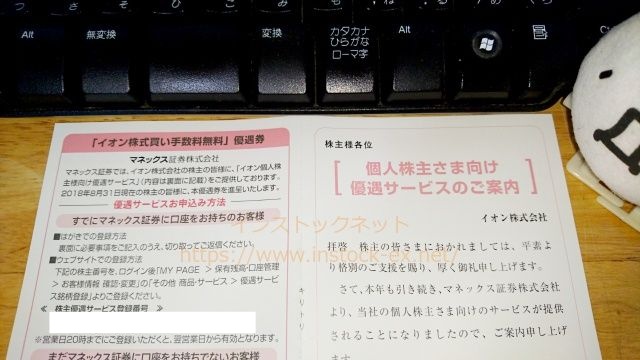 つ
さ
そ
ひ
こ
み
も
ね
る
め
Alt
無変換
変換
カタカナ
ひらがな
ローマ字
Alt
Ctrl
「イオン株式買い手数料無料」優遇券
マネックス証券株式会社
マネックス証券では、イオン株式会社の株主の皆様に、「イオン個人株
主様向け優遇サービス」(内容は裏面に記載)をご提供しております。
2018年8月31日現在の株主の皆様に、本優遇券を進呈いたします。
優遇サービスお申込み方法
すでにマネックス証券に口座をお持ちのお客様
■はがきでの登録方法
裏面に必要事項をご記入のうえ、切り取ってご返信ください。
■ウェブサイトでの登録方法
下記の株主番号を、ログイン後「MY PAGE > 保有残高・口座管理
> お客様情報 確認・変更」の「その他 商品・サービス > 優遇サービ
ス銘柄登録」よりご登録ください。
≪ 株主優遇サービス登録番号 ≫
※営業日20時までにご登録いただくと、翌営業日から有効となります。
まだマネックス証券に口座をお持ちでないお客様
キリトリ
株主様各位
個人株主さま向け
優遇サービスのご案内
イオン株式会社
拝啓 株主の皆さまにおかれましては、平素よ
り格別のご支援を賜り、厚く御礼申し上げます。
さて、本年も引き続き、マネックス証券株式会社
より、当社の個人株主さま向けのサービスが提供
されることになりましたので、ご案内申し上げ
ます。
インストックネット
https://www.instock-ex.net/